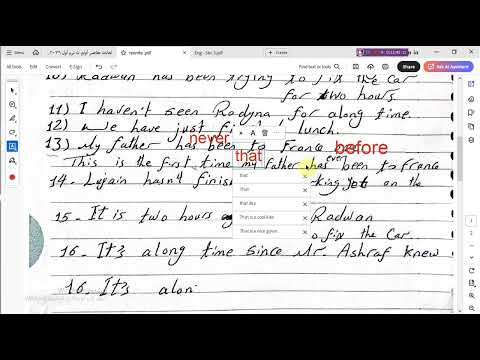 reemby .pdf
Eng - Sec 3.pdf
+ Create
Convert
E-Sign
Find text or tools
Share
AI Assistant
10) Radwan has been trying to fix the Car
for two hours
11) I haven't seen Rodyna, for along time.
12) We have just fi lunch.
never
13) My father has been to France before
that
This is the first time my father has ever been to France
that
That
that dics
That is a cool kite
That is a nice green
14. Lujain hasn't finis king yet on the
15. It is two hours a Radwan
to fix the Car.
16. It's along time since Mr. Ashraf knew
16. It's alon